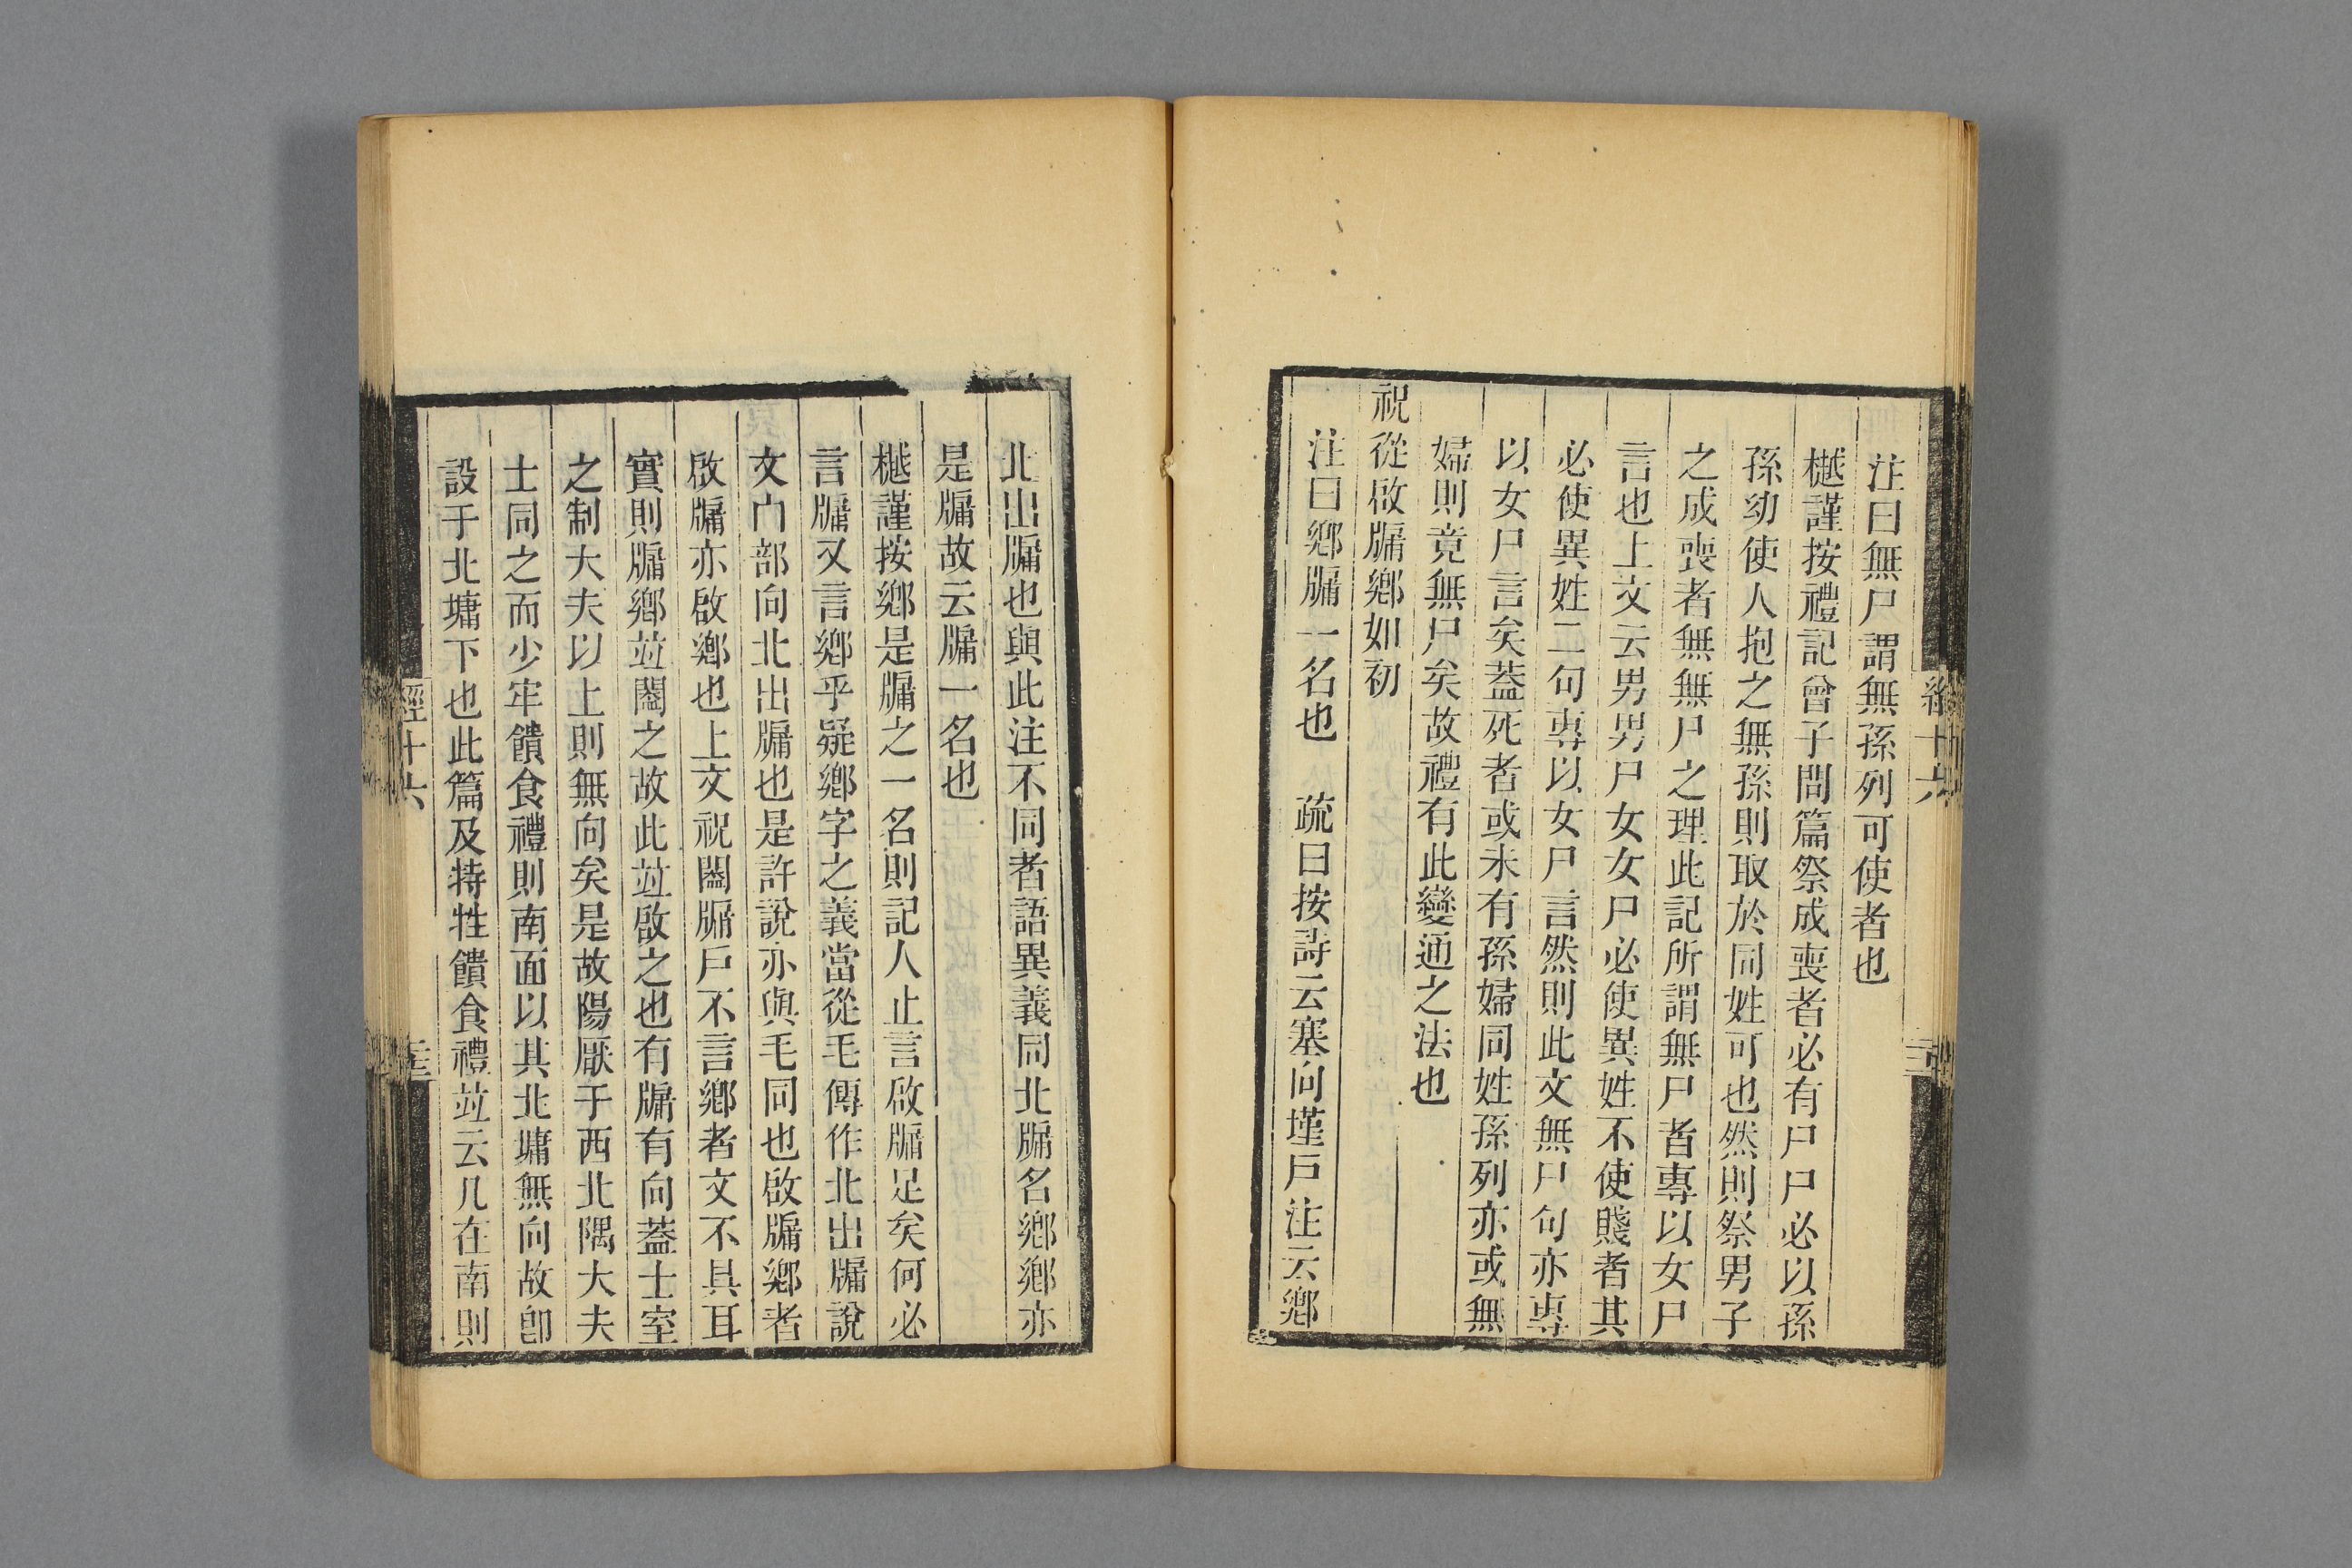 注曰無尸謂無孫列可使者也
樾謹按禮記曾子問篇祭成喪者必有尸尸必以孫
孫幼使人抱之無孫則取於同姓可也然則祭男子
之成喪者無無尸之理此記所謂無尸者專以女尸
言也上文云男男尸女女尸必使異姓不使賤者其
必使異姓二句專以女尸言然則此文無尸句亦專
以女尸言矣蓋死者或未有孫婦同姓孫列亦或無
婦則竟無尸矣故禮有此變通之法也
祝從啟牖鄉如初
注曰鄉牖一名也　疏曰按詩云塞向墐戶注云鄉
北出牖也與此注不同者語異義同北牖名鄉鄉亦
是牖故云牖一名也
樾謹按鄉是牖之一名則記人止言啟牖足矣何必
言牖又言鄉乎疑鄉字之義當從毛傳作北出牖說
文宀部向北出牖也是許說亦與毛同也啟牖鄉者
啟牖亦啟鄉也上文祝闔牖戶不言鄉者文不具耳
實則牖鄉竝闔之故此竝啟之也有牖有向蓋士室
之制大夫以上則無向矣是故陽厭于西北隅大夫
士同之而少牢饋食禮則南面以其北墉無向故卽
設于北墉下也此篇及特牲饋食禮竝云几在南則
經十六